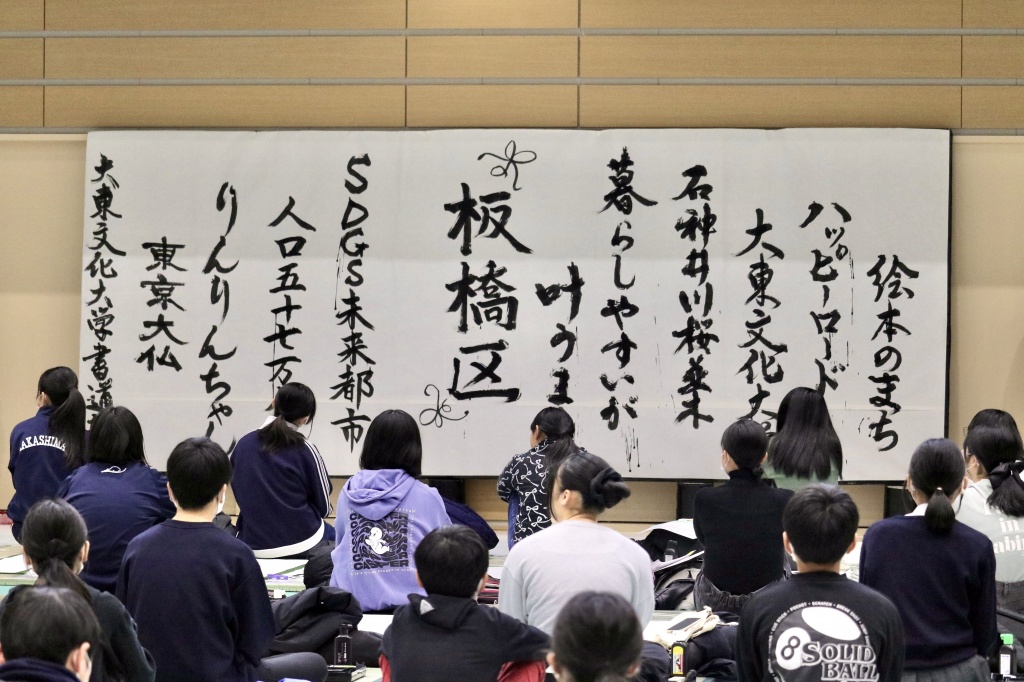 絵本のまち
ハッピーロード
大東文化大
石神井川桜並木
暮らしやすいが
叶うま
板橋区
SDGS未来都市
人口五十七万
りんりんちゃん
東京大仏
大東文化大学書道
AKASHIMA
CASPER
8 SOLID
BALL
in